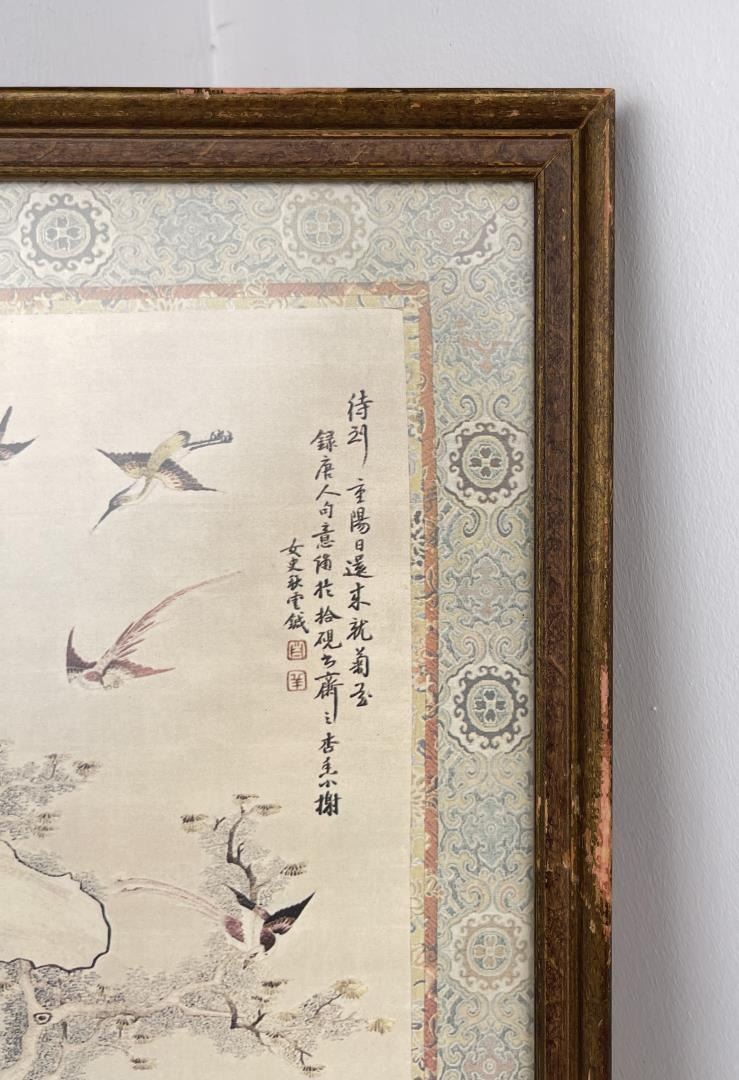 待到重陽日還來就菊花
錄唐人句意繡於拾硯古齋之杏禾小榭
女史秋雲鍼